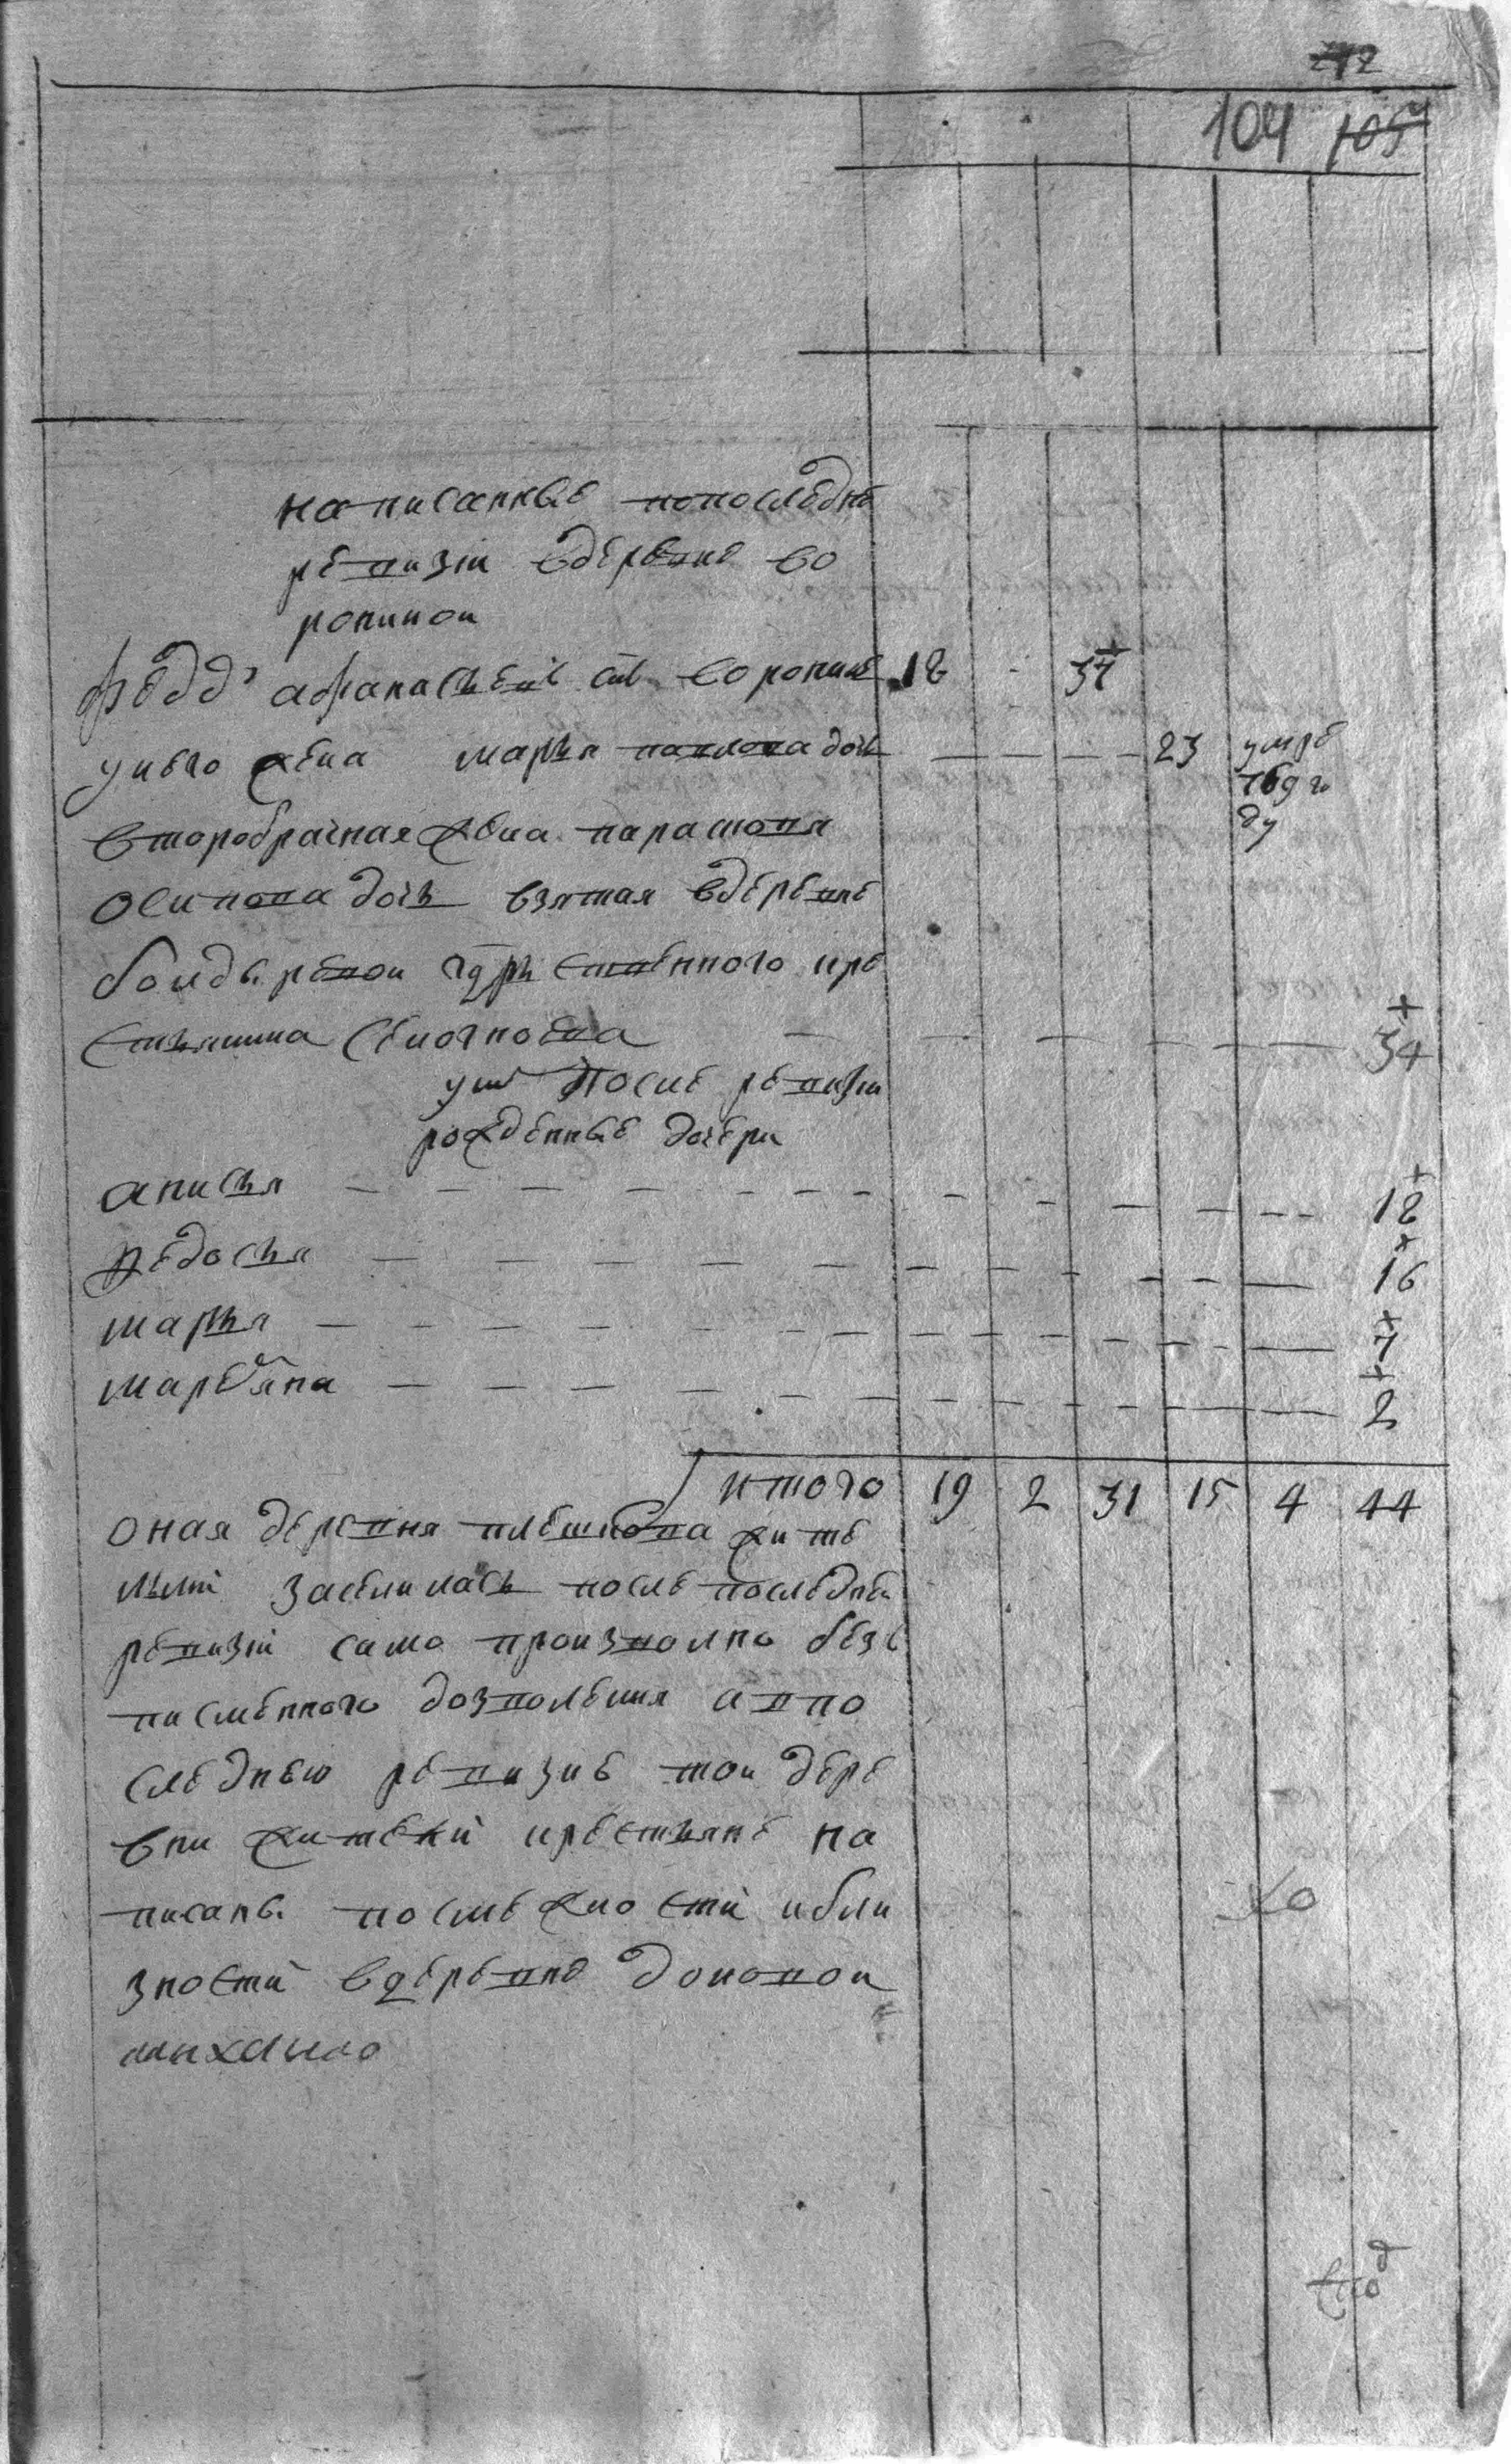 212
104 105
написанные попоследне
ревизiи вдеревне во
рониной
Федо<sup>р</sup> афанасьевъ сн̃ъ воронинъ 18 - 34
унего жена марья павлова дочь — — — 23 умре
769 го
ду
второбрачная жена парасковя
осипова дочь взятая вдеревне
болдыревой гдрственного кре
стьянина — — — — — — 34
унихъ После ревизiи
рожденные дочери
анисья — — — — — — 18
федосья — — — — — — 16
марья — — — — — — 7
марemьяна — — — — — — 2
итого 19 2 31 15 4 44
оная деревня плешкова жите
льми заселилась после последней
ревизiи само произволно безъ
писменного дозволения а впо
следнею ревизию той дере
вни жители крестьяне на
писаны посмежности иbли
зности вдеревне
михаило